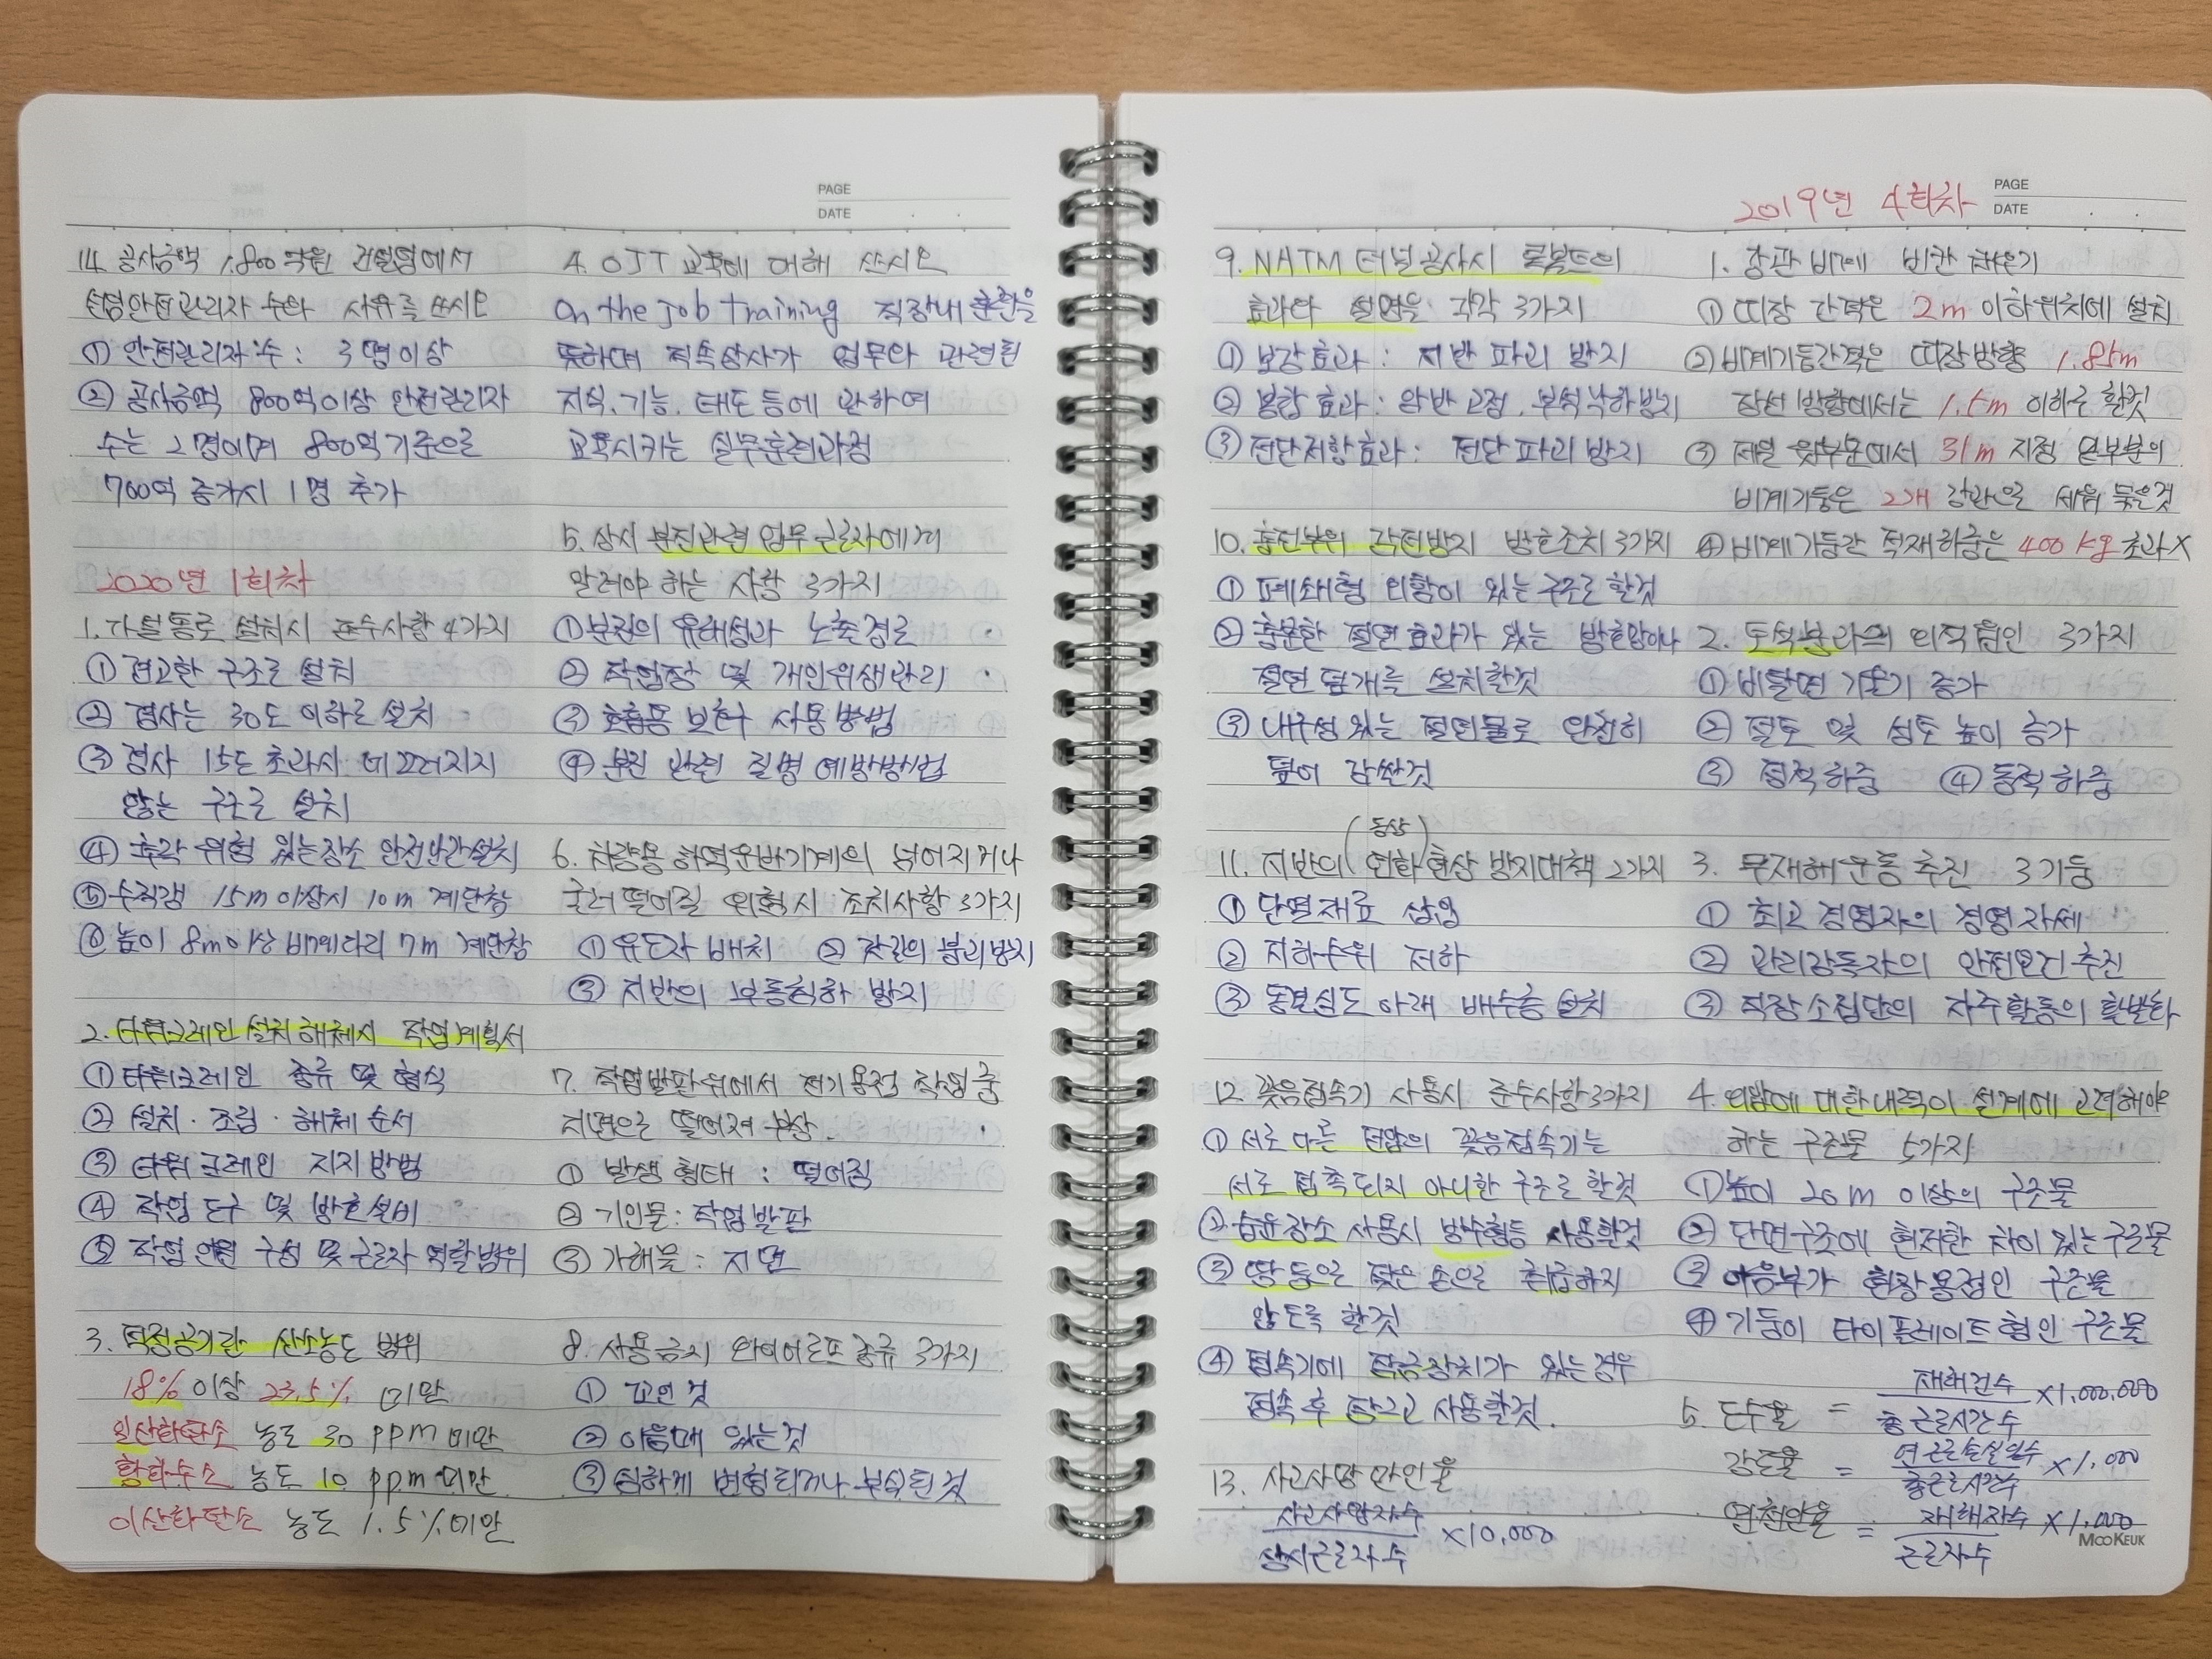 PAGE
DATE
14. 공사금액 1,800억원 건설업에서
선임안전관리자 수와 사유를 쓰시오
① 안전관리자 수 : 3명이상
② 공사금액 800억이상 안전관리자
수는 2명이며 800억기준으로
700억 증가시 1명 추가
2020년 1회차
1. 가설통로 설치시 준수사항 4가지
① 견고한 구조로 설치
② 경사는 30도 이하로 설치
③ 경사 15도 초과시 미끄러지지
않는 구조로 설치
④ 추락 위험 있는장소 안전난간설치
⑤ 수직갱 15m이상시 10m 계단참
⑥ 높이 8m이상 비계다리 7m 계단참
2. 타워크레인 설치해체시 작업계획서
① 타워크레인 종류 및 형식
② 설치 · 조립 · 해체 순서
③ 타워크레인 지지방법
④ 작업 도구 및 방호설비
⑤ 작업인원 구성 및 근로자 역할범위
3. 적정공기란 산소농도 범위
18% 이상 23.5% 미만
일산화탄소 농도 30 ppm 미만
황화수소 농도 10 ppm 미만
이산화탄소 농도 1.5%미만
4. OJT 교육에 대해 쓰시오
On the job training 직장내 훈련을
뜻하며 직속상사가 업무와 관련된
지식. 기능. 태도 등에 관하여
교육시키는 실무훈련과정
5. 상시 분진관련 업무 근로자에게
알려야 하는 사항 3가지
① 분진의 유해성과 노출경로
② 작업장 및 개인위생관리
③ 호흡용 보호구 사용 방법
④ 분진 관련 질병 예방방법
6. 차량용 하역운반기계의 넘어지거나
굴러 떨어질 위험시 조치사항 3가지
① 유도자 배치 ② 갓길의 붕괴방지
③ 지반의 부동침하 방지
7. 작업발판위에서 전기용접 작업중
지면으로 떨어져 부상.
① 발생형태 : 떨어짐
② 기인물 : 작업발판
③ 가해물 : 지면
8. 사용금지 와이어로프 종류 3가지
① 꼬인것
② 이음매 있는것
③ 심하게 변형되거나 부식된것
PAGE
DATE
9. NATM 터널공사시 록볼트의
효과와 설명을 각각 3가지
① 보강효과 : 지반 파괴 방지
② 봉합 효과 : 암반고정. 부석낙하방지
③ 전단저항효과 : 전단파괴 방지
10. 충전부위 감전방지 방호조치 3가지
① 폐쇄형 외함이 있는 구조로 할것
② 충분한 절연효과가 있는 방호망이나
절연 덮개를 설치할것
③ 내구성있는 절연물로 완전히
덮어 감쌀것
(동상)
11. 지반의 연화현상 방지대책 2가지
① 단열재료 삽입
② 지하수위 저하
③ 동결심도 아래 배수층 설치
12. 꽂음접속기 사용시 준수사항3가지
① 서로 다른 전압의 꽂음접속기는
서로 접촉되지 아니한 구조로 할것
② 습윤장소 사용시 방수형등 사용할것
③ 땀 등으로 젖은 손으로 취급하지
않도록 할것
④ 접속기에 잠금장치가 있는경우
접속 후 잠그고 사용할것.
13. 사고사망만인율
사고사망자수
×10,000
상시근로자수
2019년 4회차
1. 강관비계 빈칸 채우기
① 띠장 간격은 2m 이하위치에 설치
② 비계기둥간격은 띠장방향 1.85m
장선 방향에서는 1.5m 이하로 할것
③ 제일 윗부분에서 31m 지점 밑부분의
비계기둥은 2개 강관으로 세워 묶을것
④ 비계기둥간 적재하중은 400 kg 초과X
2. 토석붕괴의 외적원인 3가지
① 비탈면 기울기 증가
② 절토 및 성토 높이 증가
③ 정적하중 ④ 동적하중
3. 무재해운동추진 3기둥
① 최고 경영자의 경영자세
② 관리감독자의 안전보건 추진
③ 직장 소집단의 자주활동의 활발화
4. 외압에 대한내력이 설계에 고려해야
하는 구조물 5가지
① 높이 20m 이상의 구조물
② 단면구조에 현저한 차이 있는구조물
③ 이음부가 현장용접인 구조물
④ 기둥이 타이플레이트형인 구조물
5. 도수율 = 재해건수 ×1,000,000
총근로시간수
강도율 = 연근로손실일수 ×1,000
총근로시간수
연천인율 = 재해자수 ×1,000
근로자수
MOOKEUK